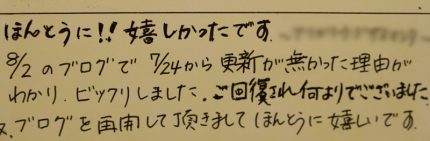 ほんとうに!! 嬉しかったです
8/2 のブログで 7/24から 更新が無かった理由が
わかり、ビックリしました。ご回復され何よりでございました
又、ブログを再開して頂きまして ほんとうに嬉しいです。